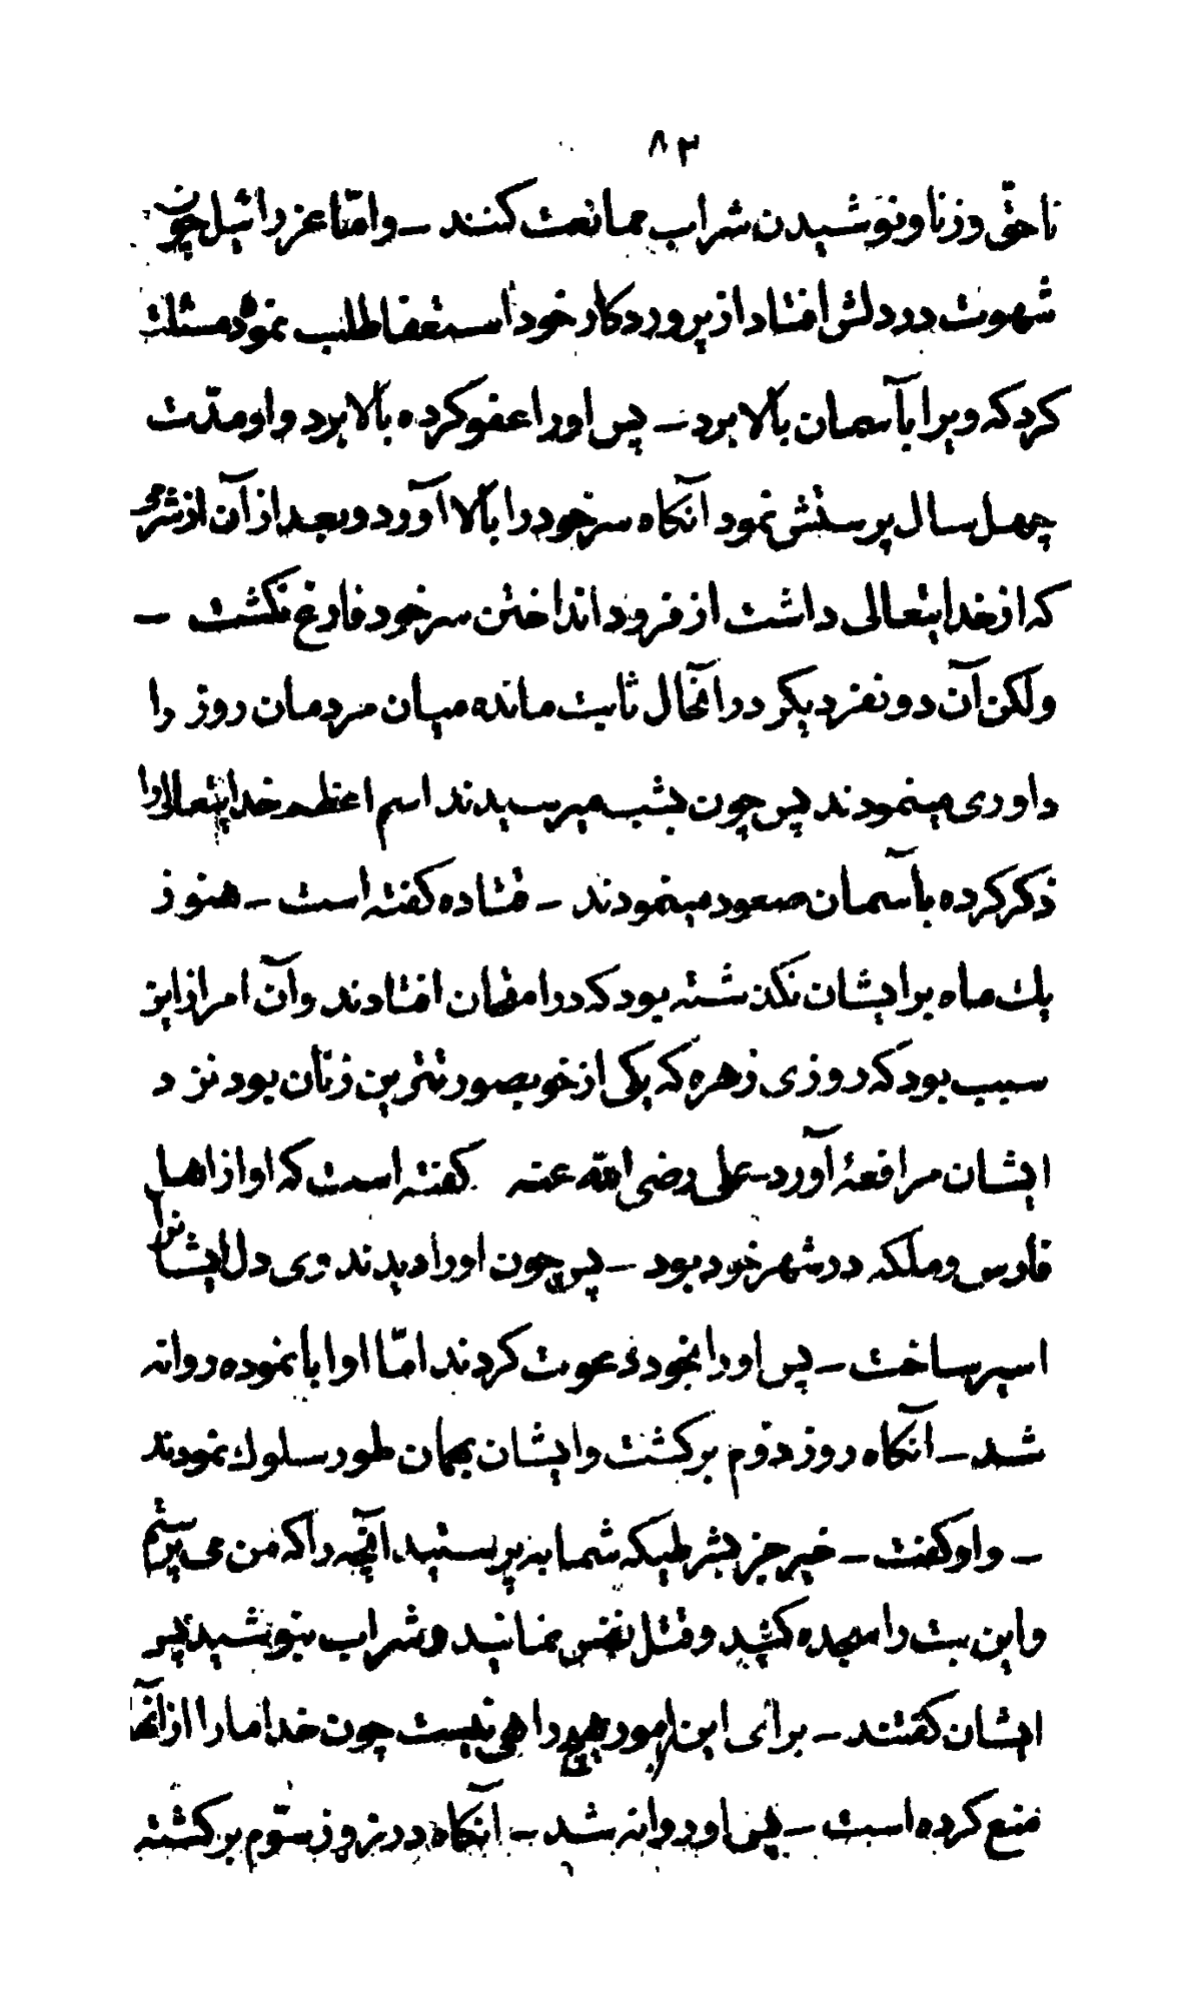 ۸۳
ناحق و زنا و نوشیدن شراب ممانعت کنند – و امّا عزرائیل چون
شهوت در دلش افتاد از پروردکار خود استعفا طلب نموده مسئلت
کرد که ویرا بآسمان بالا برد – پس اورا عفو کرده بالا برد و او مدّت
چهل سال پرستش نمود آنکاه سر خود را بالا آورد و بعد از آن از شرمی
که از خدایتعالی داشت از فرود انداختن سر خود فارغ نکشت –
ولکن آن دو نفر دیکر در آنحال ثابت مانده میان مردمان روز را
داوری مینمودند پس چون بشب میرسیدند اسم اعظم خدایتعالی را
ذکر کرده بآسمان صعود مینمودند – قتاده کفته است – هنوز
یك ماه بر ایشان نکذشته بود که در امتحان افتادند و آن امر از این
سبب بود که روزی زهره که یکی از خوبصورتترین زنان بود نزد
ایشان مرافعهٔ آورد – علی رضی الله عنه کفته است که او از اهل
فارس و ملکه در شهر خود بود – پس چون اورا دیدند وی دل ایشانرا
اسیر ساخت – پس اورا بخود دعوت کردند امّا او ابا نموده روانه
شد – آنکاه روز دوّم برکشت و ایشان بهمان طور سلوك نمودند
– و او کفت – خیر جز بشرطیکه شما به پرستید آنچه را که من می پرستم
و این بت را سجده کنید و قتل نفس نمائید و شراب بنوشید پس
ایشان کفتند – برای این امور هیچ راهی نیست چون خدا مارا از آنها
منع کرده است – پس او روانه شد – آنکاه در روز سوّم برکشته